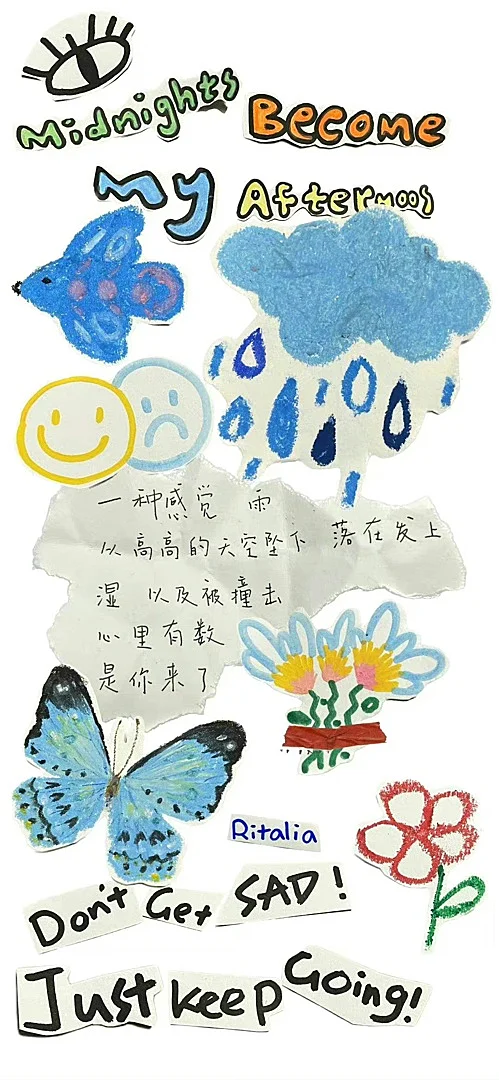 Midnights Become
My Afternoos
一种感觉 雨
从高高的天空坠下 落在发上
湿 以及被撞击
心里有数
是你来了
Ritalia
Don't Get SAD!
Just keep Going!